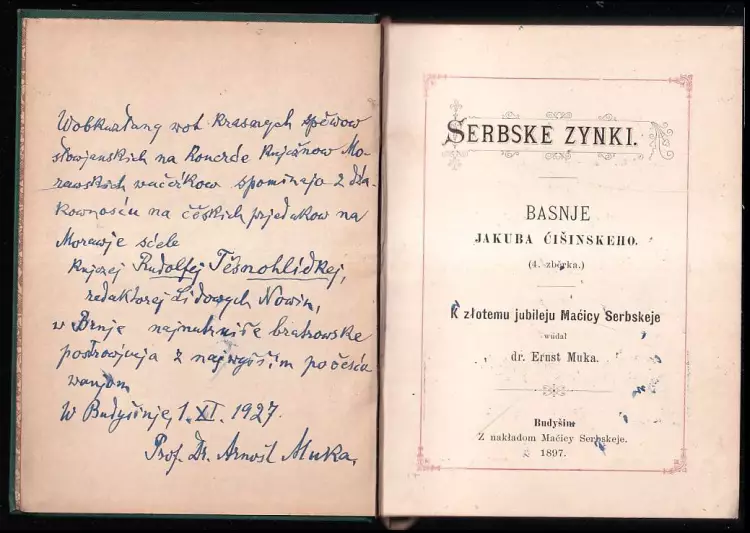 Wobkuzłany wot krasnych spěwow
słowjanskich na koncerće knježnow Mo-
rawskich wučeŕkow spominajo z dźa-
kownosću na čěskich prjedkow na
Morawje sćele
Knjezej Rudolfej Těsnohlídkej,
redaktorej Lidowych Nowin,
w Brnje najnutrniše bratrowske
postrowjenja z najwyšším počesća
wanjom
W Budyšinje, 1. XI. 1927.
Prof. Dr. Arnošt Muka.
SERBSKE ZYNKI.
BASNJE
JAKUBA ĆIŠINSKEHO.
(4. zběrka.)
K złotemu jubileju Maćicy Serbskeje
wudał
dr. Ernst Muka.
Budyšin.
Z nakładom Maćicy Serbskeje.
1897.